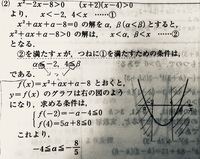 (2) x²-2x-8>0 (x+2)(x-4)>0
より, x<-2, 4<x ……①
x²+ax+a-8=0 の解を α, β(α<β)とすると,
x²+ax+a-8>0 の解は x<α, β<x ……②
となる.
②を満たす x が, つねに①を満たすための条件は,
α≦-2, 4≦β
である.
f(x)=x²+ax+a-8 とおくと,
y=f(x) のグラフは右の図のよう
になり, 求める条件は,
f(-2)=-a-4≦0
f(4)=5a+8≦0
これより,
-4≦a≦-8/5